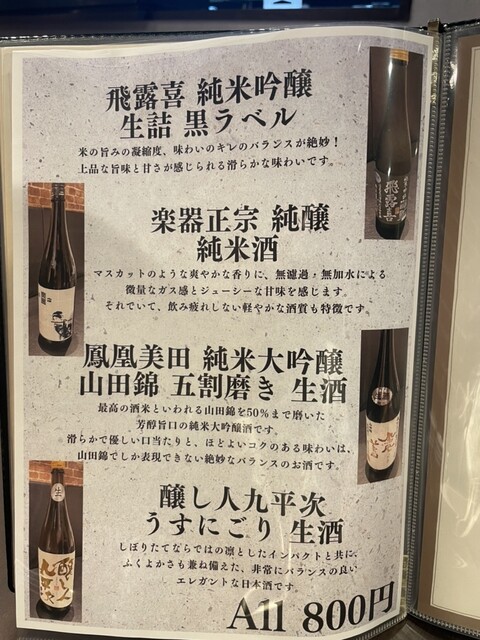 飛露喜 純米吟醸
生詰 黒ラベル
米の旨みの凝縮度、味わいのキレのバランスが絶妙!
上品な旨味と甘さが感じられる滑らかな味わいです。
楽器正宗 純醸
純米酒
マスカットのような爽やかな香りに、無濾過・無加水による
微量なガス感とジューシーな甘味を感じます。
それでいて、飲み疲れしない軽やかな酒質も特徴です。
鳳凰美田 純米大吟醸
山田錦 五割磨き 生酒
最高の酒米といわれる山田錦を50%まで磨いた
芳醇旨口の純米大吟醸酒です。
滑らかで優しい口当たりと、ほどよいコクのある味わいは、
山田錦でしか表現できない絶妙なバランスのお酒です。
醸し人九平次
うすにごり 生酒
しぼりたてならではの凛としたインパクトと共に、
ふくよかさも兼ね備えた、非常にバランスの良い
エレガントな日本酒です。
All 800円
飛露喜
生
醸し人
九平次